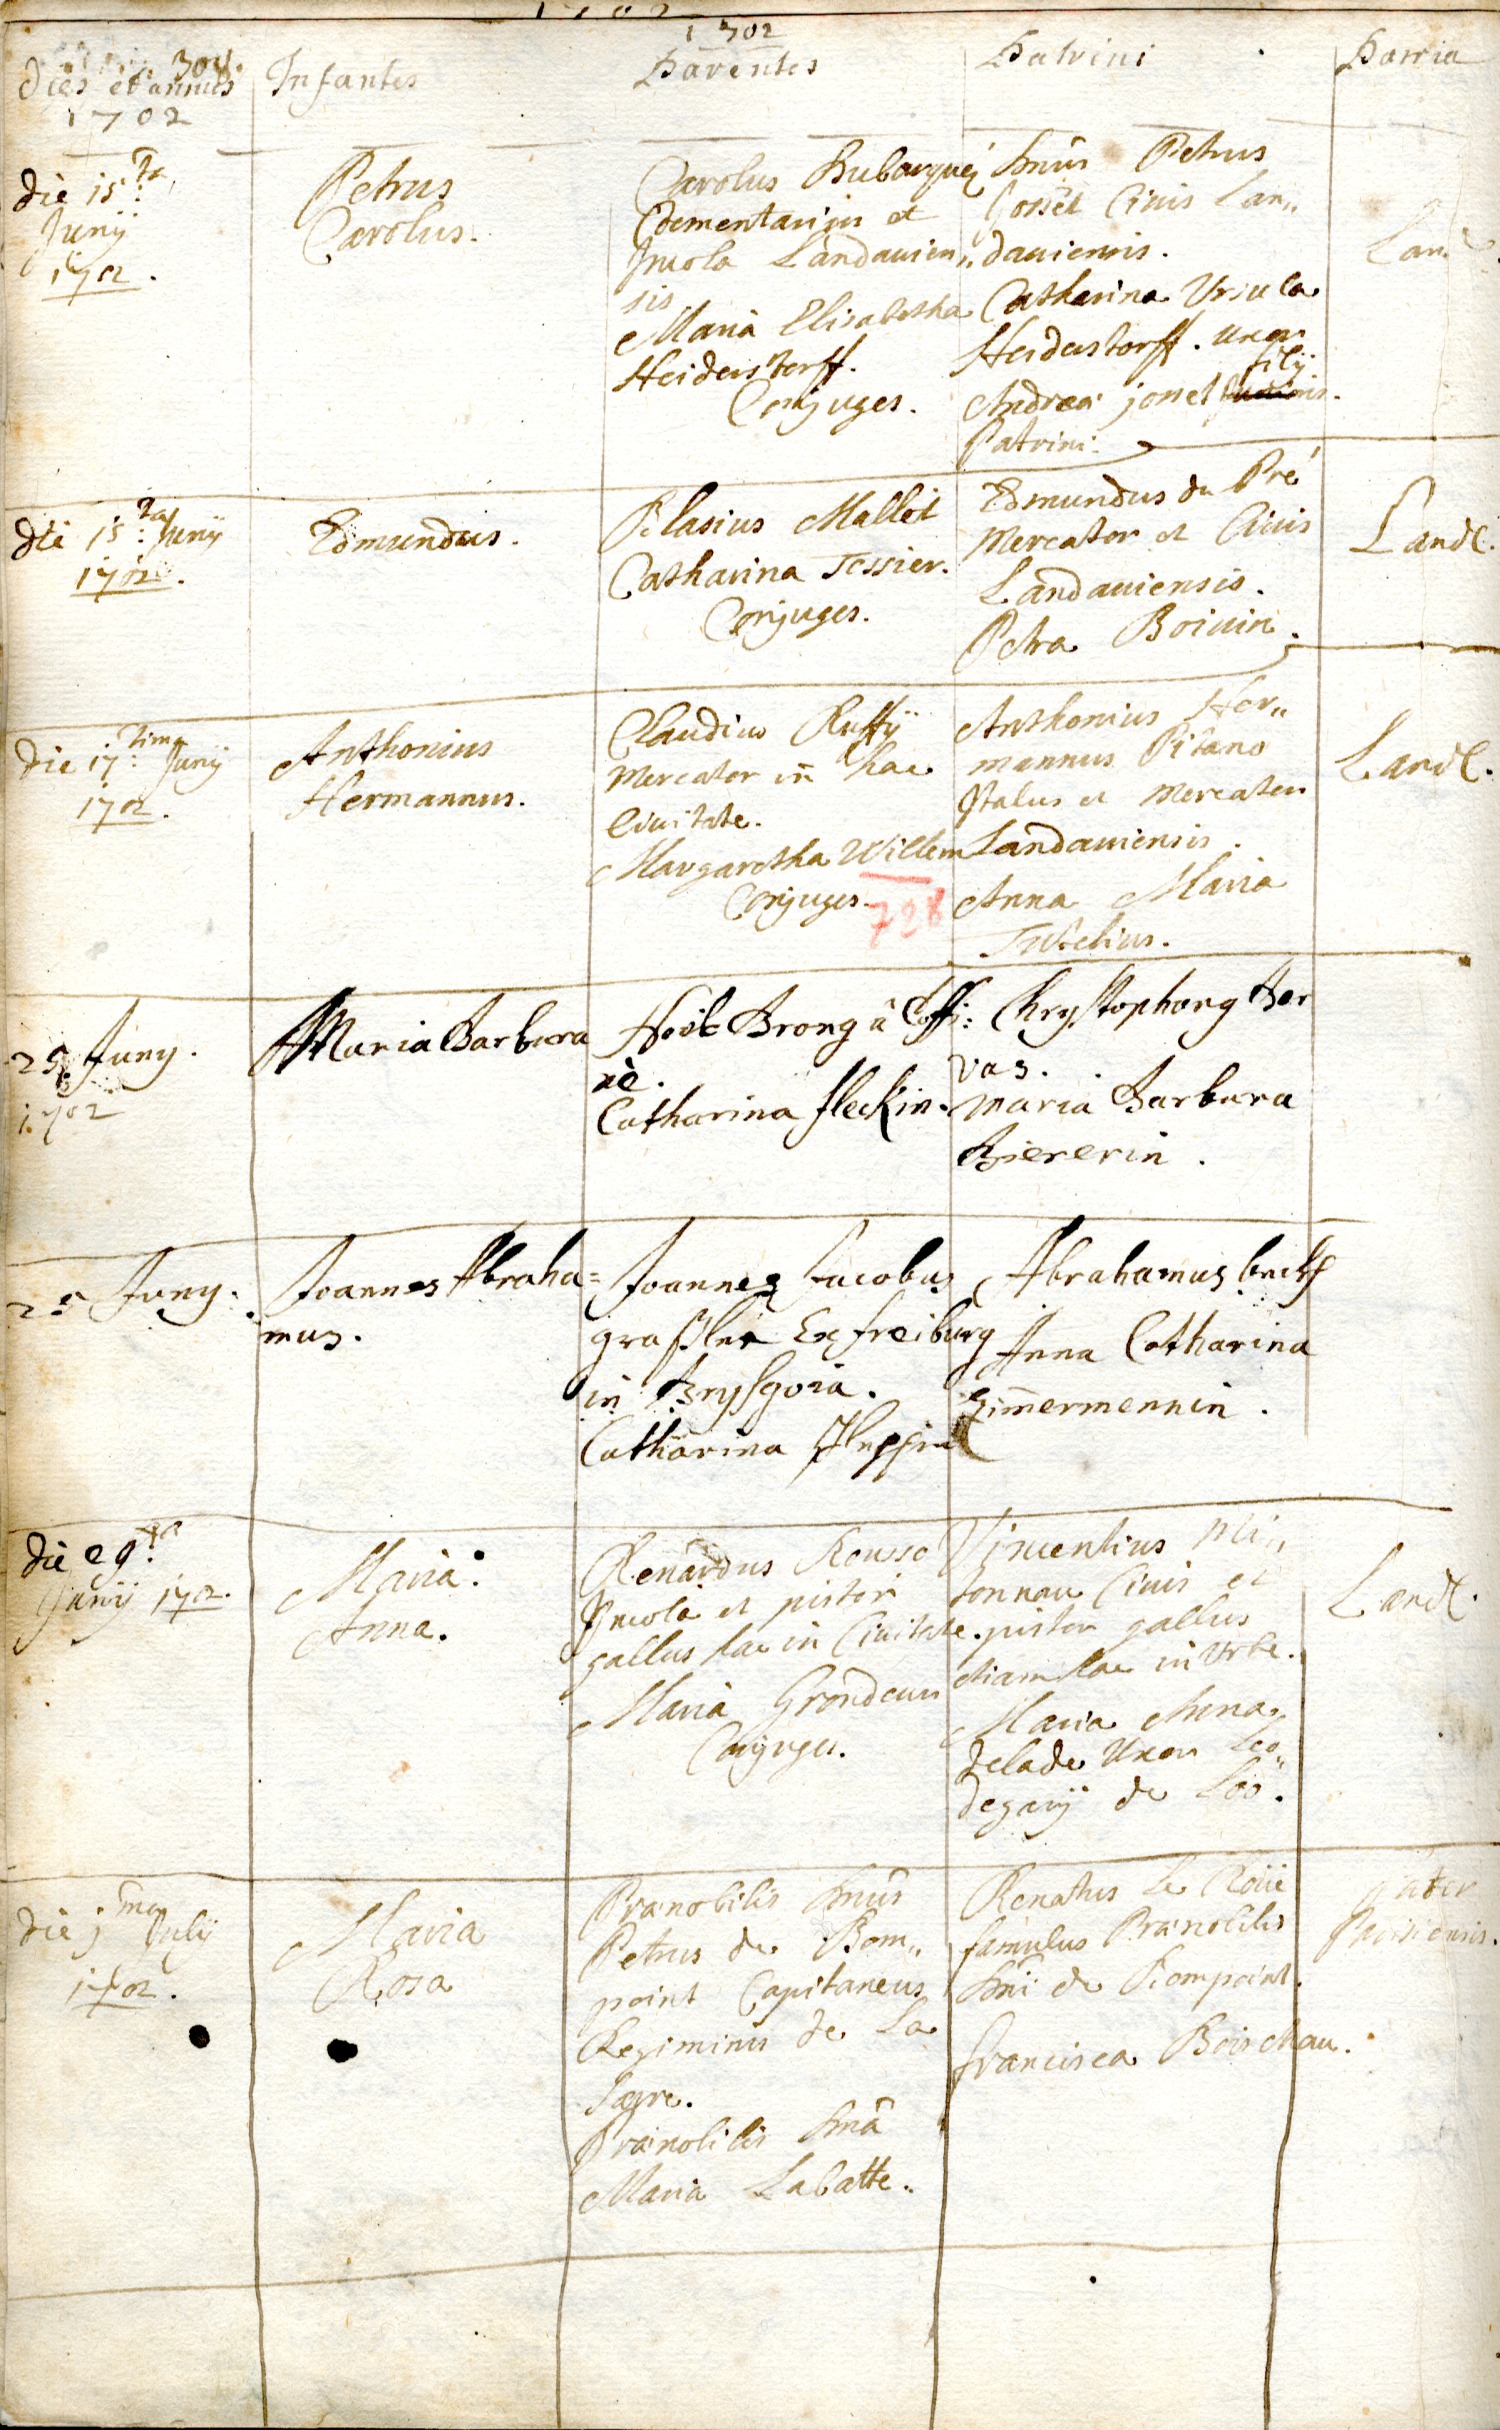 1702
304.
Dies et annus
1702
Infantes
Parentes
Patrini
Patria
die 15ta
Junij
1702.
Petrus
Carolus.
Carolus
Cementarijus et
Incola Landavien„
sis
Maria Elisabetha
Heiderstorff.
Conjuges.
Petrus
Jossel Civis Lan„
daviensis.
Catharina Ursula
Heiderstorff. uxor
filij
Andreä jossel
Patrini.
die 15ta Junij
1702.
Edmundus.
Blasius Mallet
Catharina Tessier.
Conjuges.
Edmundus du Pré
Mercator et Civis
Landaviensis.
Petra Boivin.
Land.
die 17tima Junij
1702.
Anthonius
Hermannus.
Claudius Ruffij
Mercator in hac
Civitate.
Margaretha Willem
Conjuges.
Anthonius Her„
mannus Pitano
Italus et Mercator
Landaviensis.
Anna Maria
Land.
25 Juny.
1702
Maria Barbara
Noël Brong a Coffi:
nè.
Catharina fleckin.
Chrystophorg Ber
vas.
Maria Barbara
Biererin.
25 Juny.
Joannes Abraha=
mus.
Joannes Jacobus
graßler Ex freiburg
in Brysgoia.
Catharina
Abrahamus
Anna Catharina
Zim̄ermennin.
die 29ta
Junij 1702.
Maria
Anna.
Renardus Rousso
Incola et pistor
gallus hac in Civitate.
Maria Grondeau
Conjuges.
Vincentius Mi„
tonnau Civis et
pistor gallus
etiam hac in Urbe.
Maria
delade Uxor Leo„
degarij de Loo.
Land.
die 1ma Julij
1702.
Maria
Rosa
Prænobilis Dnus
Petrus de Rom„
point Capitaneus
Regiminis de La
Prænobilis Dna
Maria Labatte.
Renatus Le Roüe
famulus Prænobilis
Dni de Rompoint.
Francisca Boischau.
pater
Parisiensis.